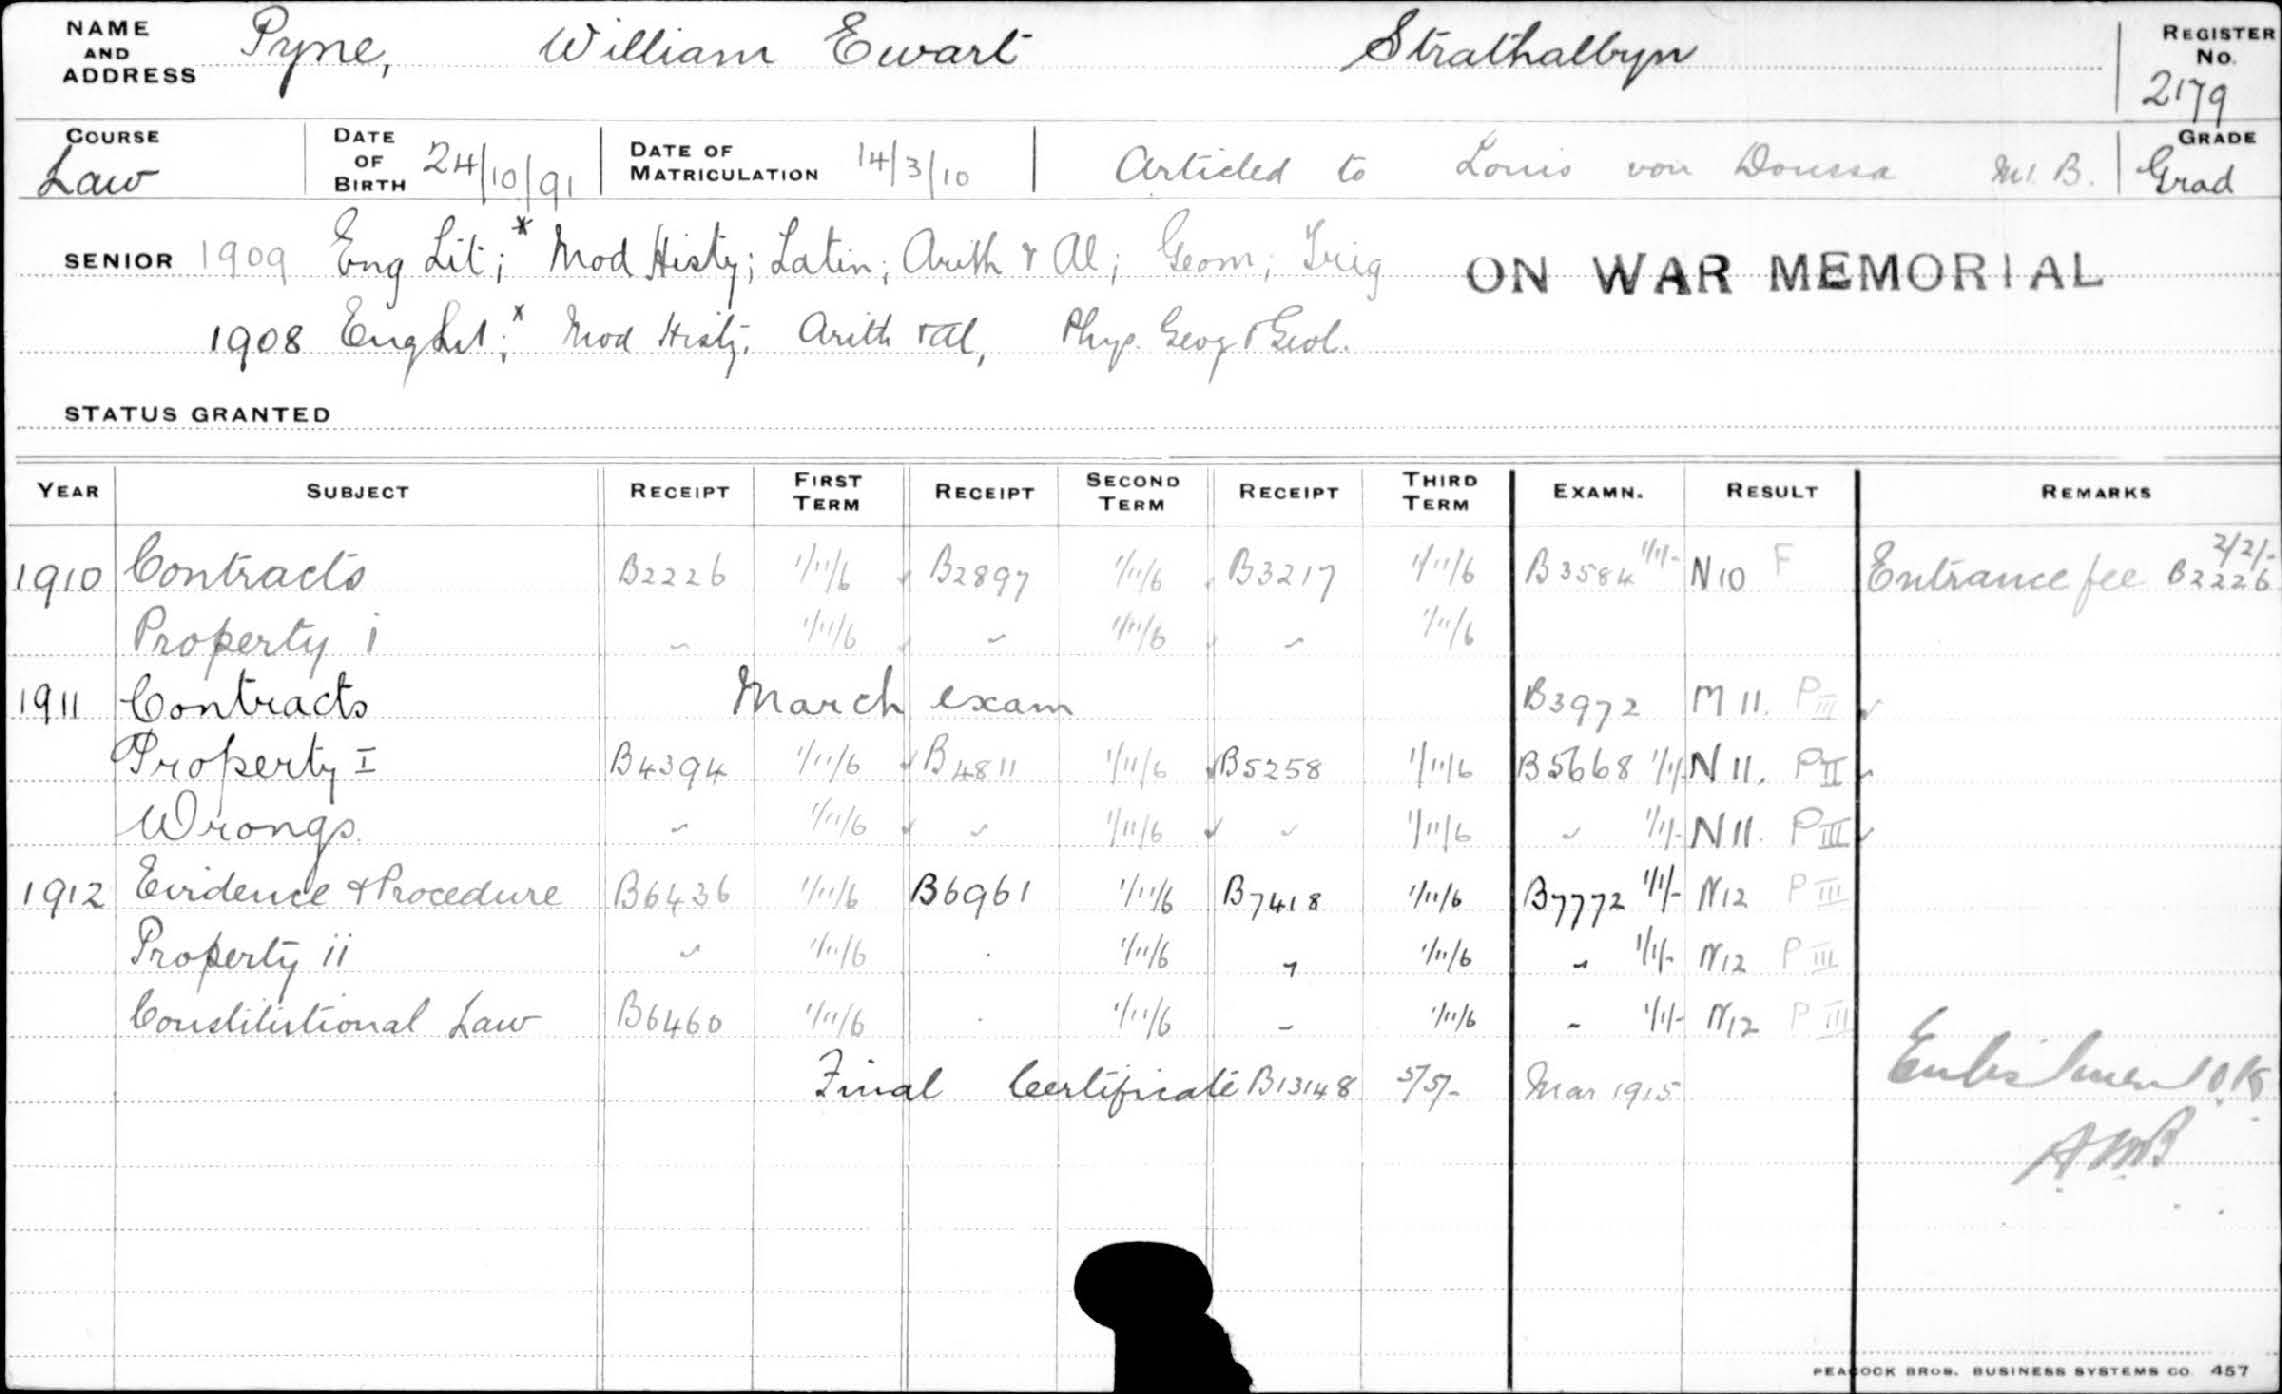 NAME AND ADDRESS Pyne, William Ewart Strathalbyn REGISTER No. 2179
COURSE Law DATE OF BIRTH 24/10/91 DATE OF MATRICULATION 14/3/10 Articled to Louis von Doussa Mt. B. GRADE Grad
SENIOR 1909 Eng Lit;* Mod Histy; Latin; Arith & Al; Geom; Trig ON WAR MEMORIAL
1908 Eng Lit;* Mod Histy. Arith & Al, Phys. Geog & Geol.
STATUS GRANTED
YEAR SUBJECT RECEIPT FIRST TERM RECEIPT SECOND TERM RECEIPT THIRD TERM EXAMN. RESULT REMARKS
1910 Contracts B2226 1/11/6 B2897 1/11/6 B3217 1/11/6 B3584 1/1/- N10 F Entrance fee 2/2/- B2226
Property i " 1/11/6 " 1/11/6 " 1/11/6
1911 Contracts March exam B3972 M 11. P III
Property I B4394 1/11/6 B4811 1/11/6 B5258 1/11/6 B5668 1/1/- N 11. P II
Wrongs " 1/11/6 " 1/11/6 " 1/11/6 " 1/1/- N 11. P III
1912 Evidence & Procedure B6436 1/11/6 B6961 1/11/6 B7418 1/11/6 B7772 1/1/- N12 P III
Property ii " 1/11/6 1/11/6 " 1/11/6 " 1/1/- N12 P III
Constitutional Law B6460 1/11/6 1/11/6 " 1/11/6 " 1/1/- N12 P III
Final Certificate B13148 5/5/- Mar 1915 Enlistment O.K.
PEACOCK BROS. BUSINESS SYSTEMS CO. 457